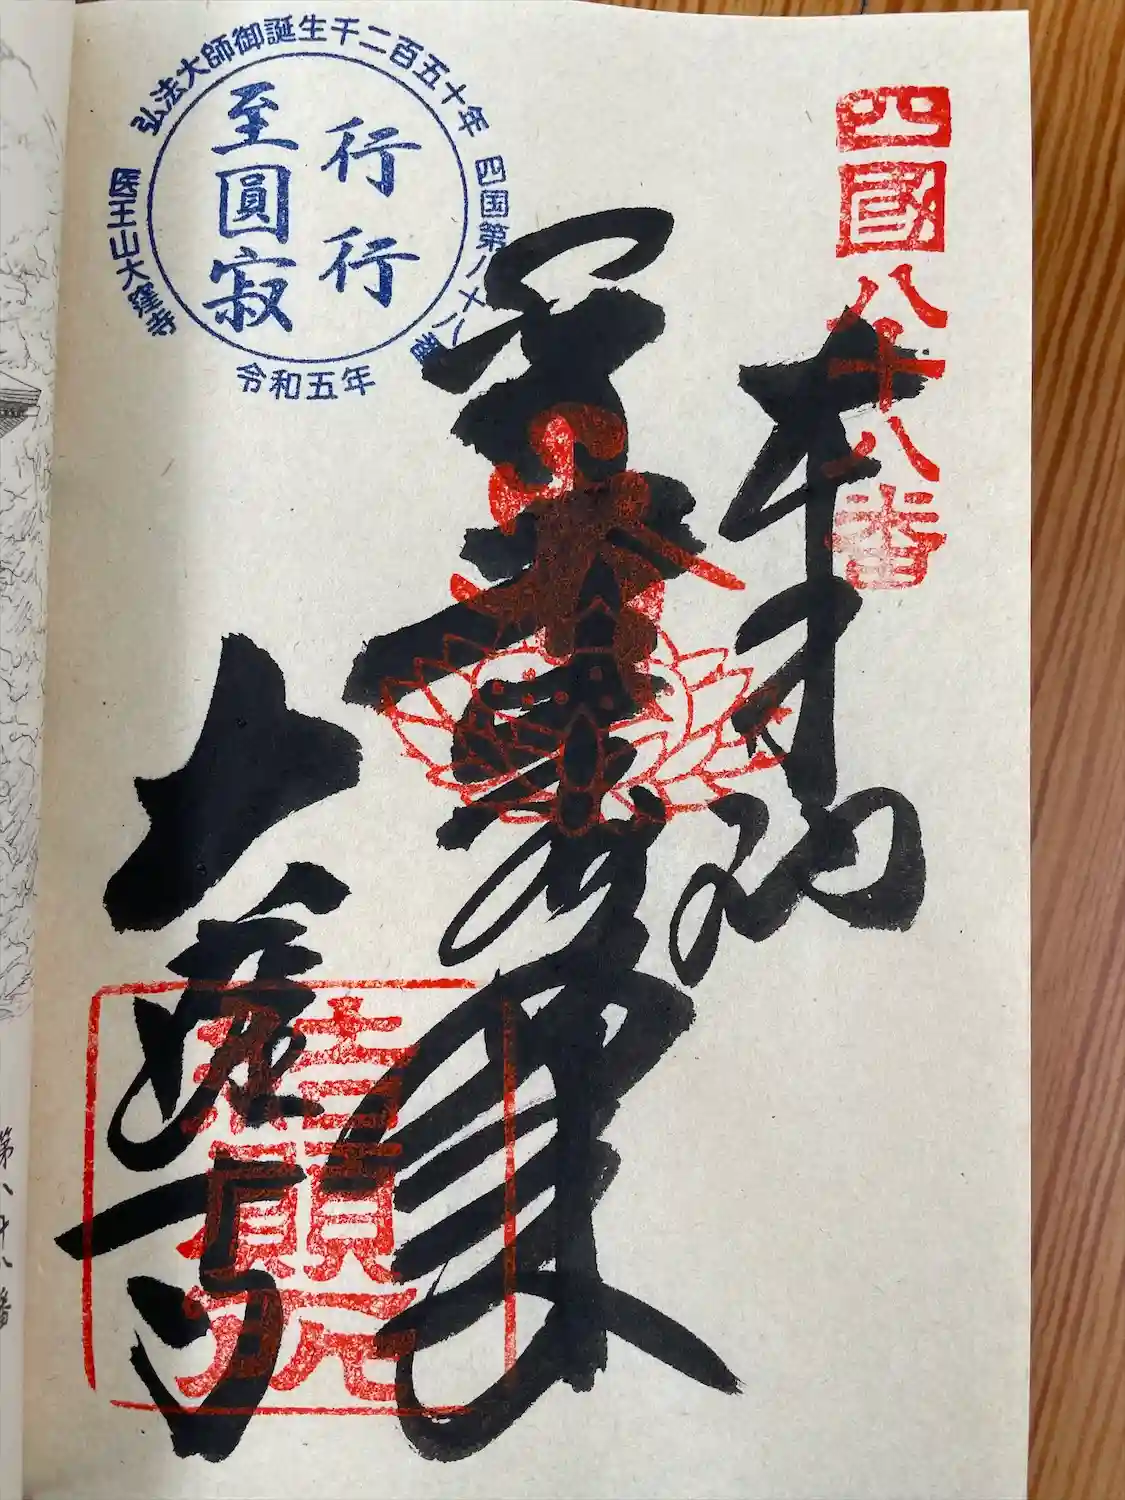 弘法大師御誕生千二百五十年
四国第八十八番
医王山大窪寺
令和五年
行行
至圓寂
四國八十八番
奉納
大窪寺
結願所
第八十八番